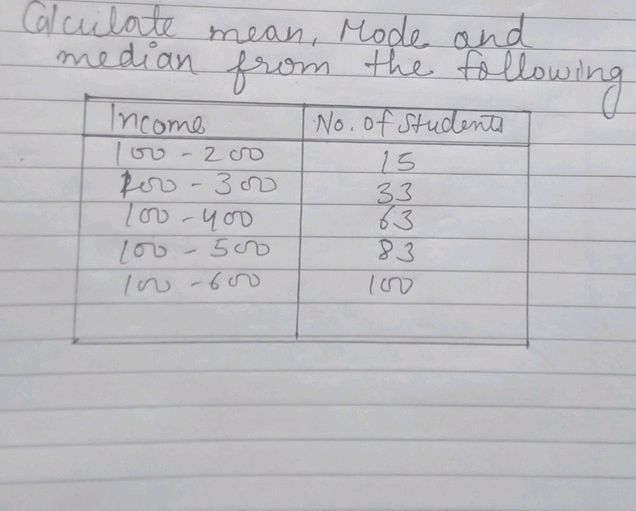 Calculate mean, Mode and
median from the following
Income No. of Students
100 - 200 15
100 - 300 33
100 - 400 63
100 - 500 83
100 - 600 100